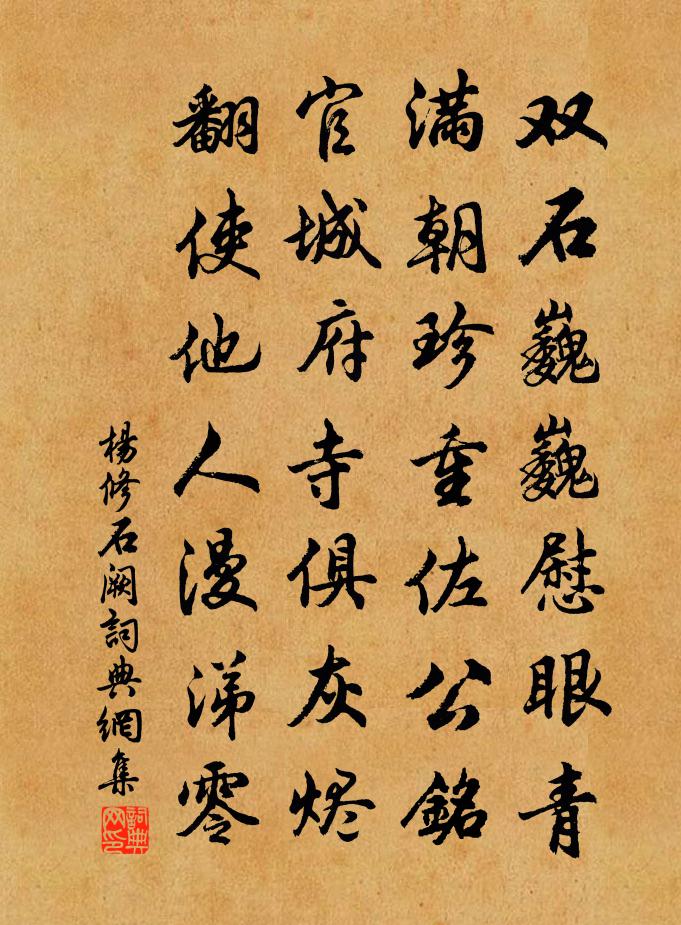 双石巍巍慰眼青
满朝珍重佐公銘
官城府寺俱灰烬
翻使他人漫涕零
楊修石阙詞典網集
詞典网印